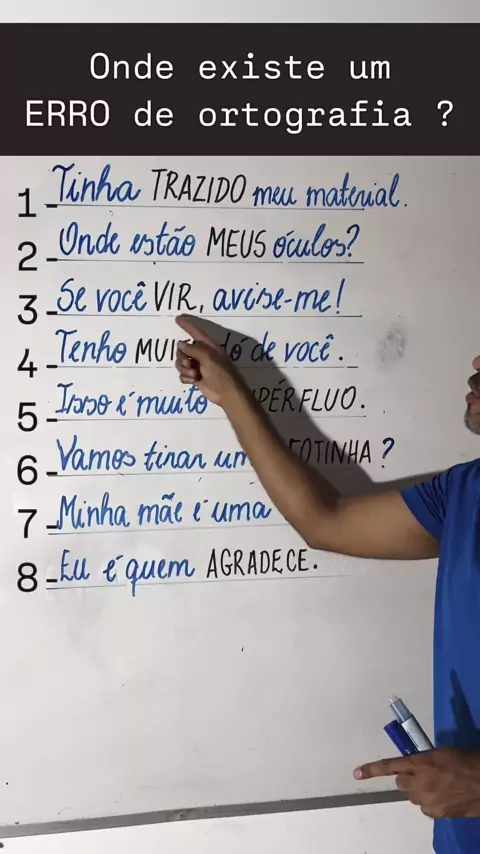 Onde existe um
ERRO de ortografia ?
1 - Tinha TRAZIDO meu material.
2 - Onde estão MEUS óculos?
3 - Se você VIR, avise-me!
4 - Tenho de você.
5 - Isso é muito
6 - Vamos tirar ?
7 - Minha mãe é uma
8 - Eu é quem AGRADECE.